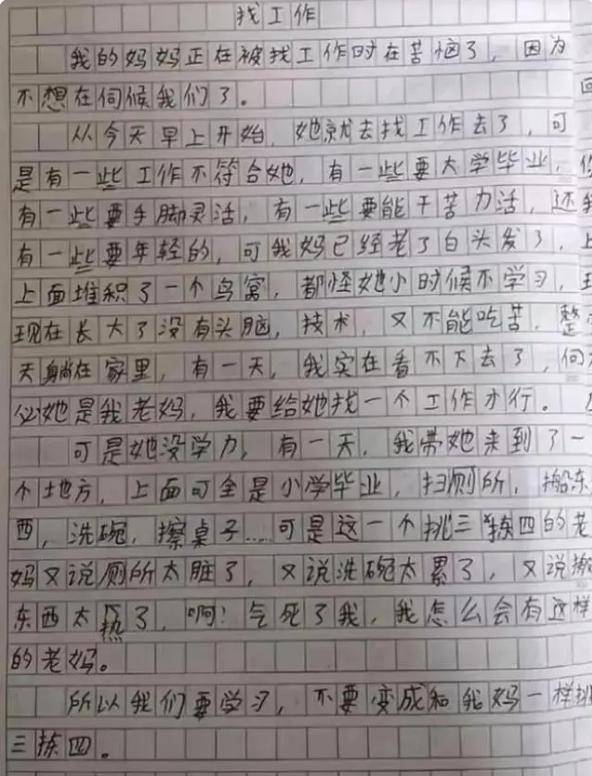 找工作
我的妈妈正在被找工作时在苦恼了，因为
不想在伺候我们了。
从今天早上开始，她就去找工作去了，可
是有一些工作不符合她，有一些要大学毕业，
有一些要手脚灵活，有一些要能干苦力活，还
有一些要年轻的，可我妈已经老了白头发了，
上面堆积了一个鸟窝，都怪她小时候不学习，
现在长大了没有头脑，技术，又不能吃苦，整
天躺在家里，有一天，我实在看不下去了，何
必她是我老妈，我要给她找一个工作才行。
可是她没学力，有一天，我带她来到了一
个地方，上面可全是小学毕业，扫厕所，搬东
西，洗碗，擦桌子……可是这一个挑三拣四的老
妈又说厕所太脏了，又说洗碗太累了，又说搬
东西太热了，啊！气死了我，我怎么会有这样
的老妈。
所以我们要学习，不要变成和我妈一样挑
三拣四。